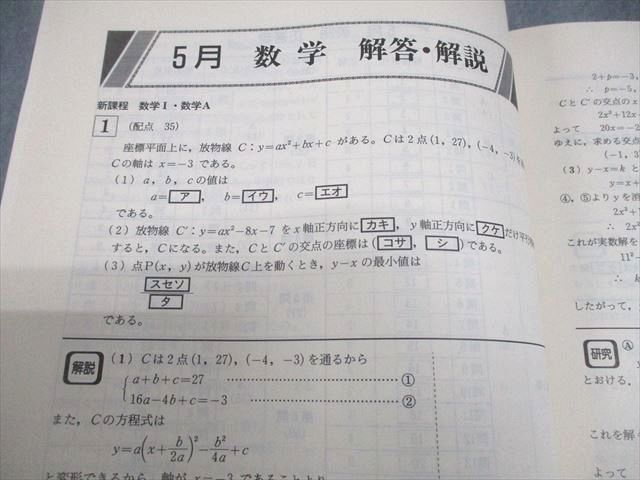 5月 数学 解答・解説
新課程 数学Ⅰ・数学A
1 (配点 35)
座標平面上に，放物線 C：y=ax²+bx+c がある。Cは2点(1, 27)，(−4, −3)を
Cの軸は x=−3 である。
(1) a，b，cの値は
a=ア b=イウ， c=エオ
である。
(2) 放物線 C′：y=ax²−8x−7 を x 軸正方向に カキ，y 軸正方向に クケ だけ平行
すると，Cになる。また，CとC′の交点の座標は(コサ， シ)である。
(3) 点P(x, y)が放物線C上を動くとき，y−x の最小値は
スセソ
タ
である。
解説 (1) Cは2点(1, 27)，(−4, −3)を通るから
a+b+c=27 ……… ①
16a−4b+c=−3 ……… ②
また，Cの方程式は
y=a(x+b/2a)²−b²/4a+c
と変形できるから，軸が x=−3 であることより
2+p=−3,
∴ p=−5,
CとC′の交点のx
2x²+12x
よって 20x=−
ゆえに，求める交点
(−1,
(3) y−x=k と
y=x+
④，⑤よりyを消
2x²+
∴ 2x²
これが実数解を
11²−
∴ k
したがって，
研究 Ⓐ
とおける．
これを解
よって